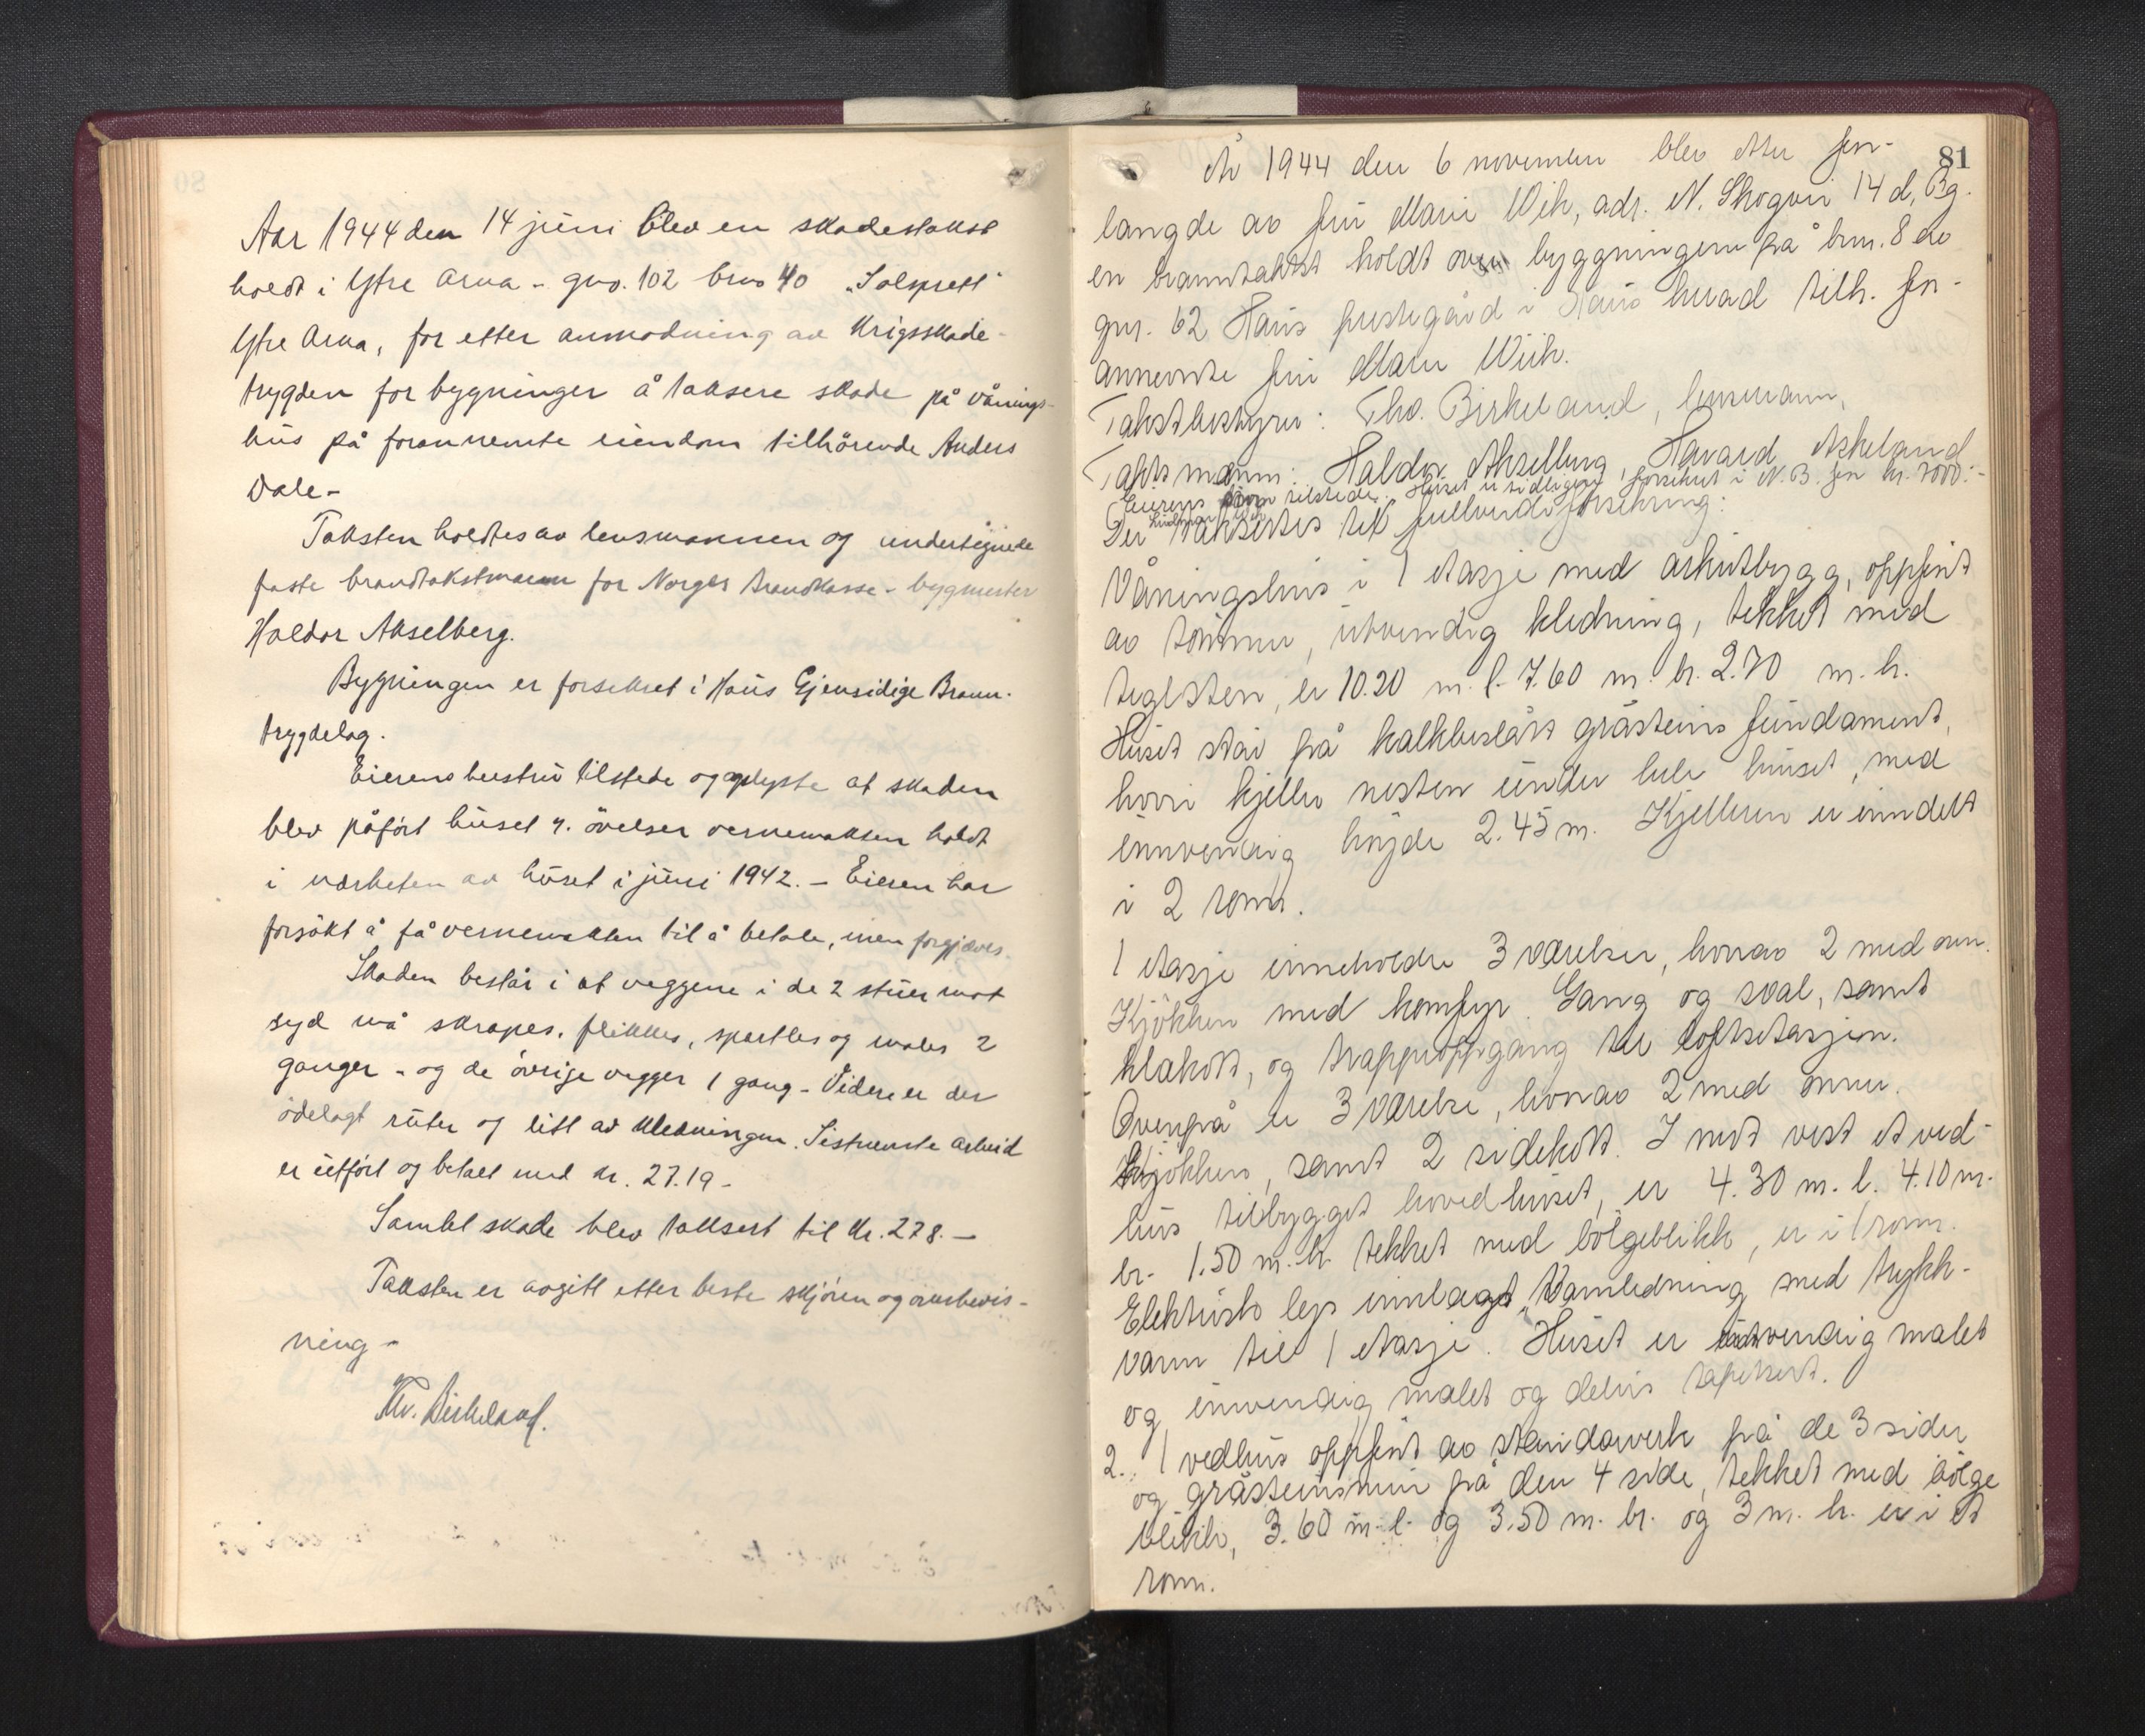 Aar 1944 den 14 juni blev en skadestakst
holdt i Ytre Arna - gno. 102 bno 40 "Solsprett"
Ytre Arna, for etter anmodning av Krigsskade-
trygden for bygninger å taksere skade på vånings-
hus på forannemte eiendom tilhörende Anders
Dale -
Taksten holdtes av lensmannen og undertegnede
faste brandtakstmann for Norges Brandkasse - bygmester
Haldor Akselberg.
Bygningen er forsikret i Haus Gjensidige Brann-
trygdelag.
Eierens hustru tilstede og oplyste at skaden
blev påfört huset v. övelser vernemakten holdt
i närheten av huset i juni 1942. - Eieren har
forsökt å få vernemakten til å betale, men forgjæves.
Skaden består i at veggene i de 2 stuer mot
syd må skrapes, flikkes, sparkles og males 2
ganger - og de övrige vegger 1 gang - Videre er der
ödelagt ruter og litt av kledningen. Sistnemte arbeid
er utfört og betalt med kr. 27.19 -
Samlet skade blev taksert til kr. 278. -
Taksten er avgitt etter beste skjönn og overbevis-
ning -
Thv. Birkeland.
81
År 1944 den 6 november blev etter for-
langde av fru Marie Wiik, adr. N. Skogvei 14 d, Bg.
en branntakst holdt over byggningene på bnr. 8 av
gnr. 62 Haus prestegård i Haus herad tilh. for-
annevnte fru Marie Wiik.
Takstbestyrer: Tho. Birkeland, lensmann,
Takstmenn: Haldor Akselberg, Havard Askeland
Eierens tilstede. Huset er tidligere forsikret i N.B. for kr. 7000:-
Der taksertes til fullverdiforsikring:
Våningshus i 1 etasje med arkutbygg, oppfört
av tömmer, utvendig kledning, tekket med
teglsten, er 10.20 m. l. 7.60 m. br. 2.70 m. h.
Huset står på kalkbeslått gråsteins fundament,
hvori kjeller nesten under hele huset, med
innvendig höyde 2.45 m. Kjelleren er inndelt
i 2 rom.
1 etasje inneholder 3 værelser, hvorav 2 med ovn.
Kjökken med komfyr. Gang og sval, samt
klakott, og trappeoppgang til loftsetasjen.
Ovenpå er 3 værelse, hvorav 2 med ovner.
Kjökken, samt 2 sidekott. I mot vest et ved-
hus tilbygget hovedhuset, er 4.30 m. l. 4.10 m.
br. 1.50 m. h. tekket med bölgeblikk, er i 1 rom.
Elektrisk lys innlagt, Vannledning med trykk-
vann til 1 etasje. Huset er utvendig malet
og innvendig malet og delvis tapetsert.
2. 1 vedhus oppfört av standarverk på de 3 sider
og gråsteinsmur på den 4 side, tekket med bölge
blikk, 3.60 m. l. og 3.50 m. br. og 3 m. h. er i et
rom.